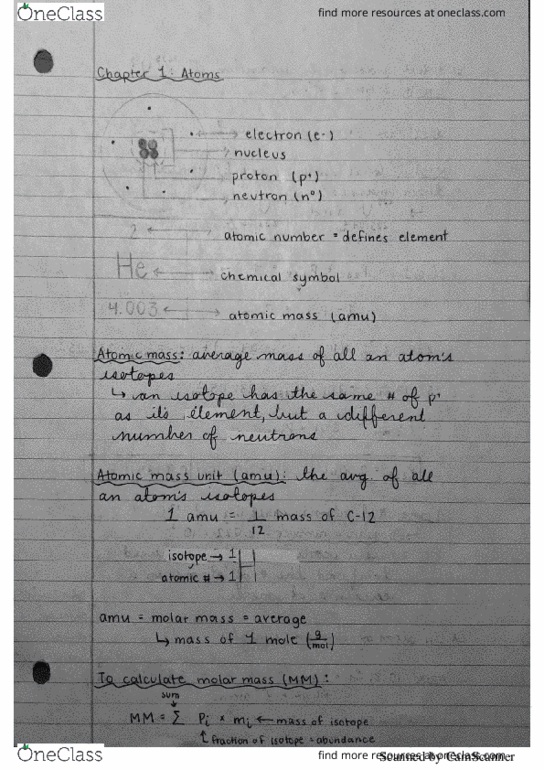 OneClass
find more resources at oneclass.com
Chapter 1: Atoms
electron (e-)
nucleus
proton (p⁺)
neutron (n°)
2
atomic number = defines element
He
chemical symbol
4.003
atomic mass (amu)
Atomic mass: average mass of all an atom's
isotopes
↳ an isotope has the same # of p⁺
as its element, but a different
number of neutrons
Atomic mass unit (amu): the avg of all
an atom's isotopes
1 amu = 1/12 mass of C-12
isotope → 1 H
atomic # → 1
amu = molar mass = average
↳ mass of 1 mole (g/mol)
To calculate molar mass (MM):
sum
MM = Σ Pi × mi ← mass of isotope
↳ fraction of isotope = abundance
OneClass
find more resources at oneclass.com
Scanned by CamScanner